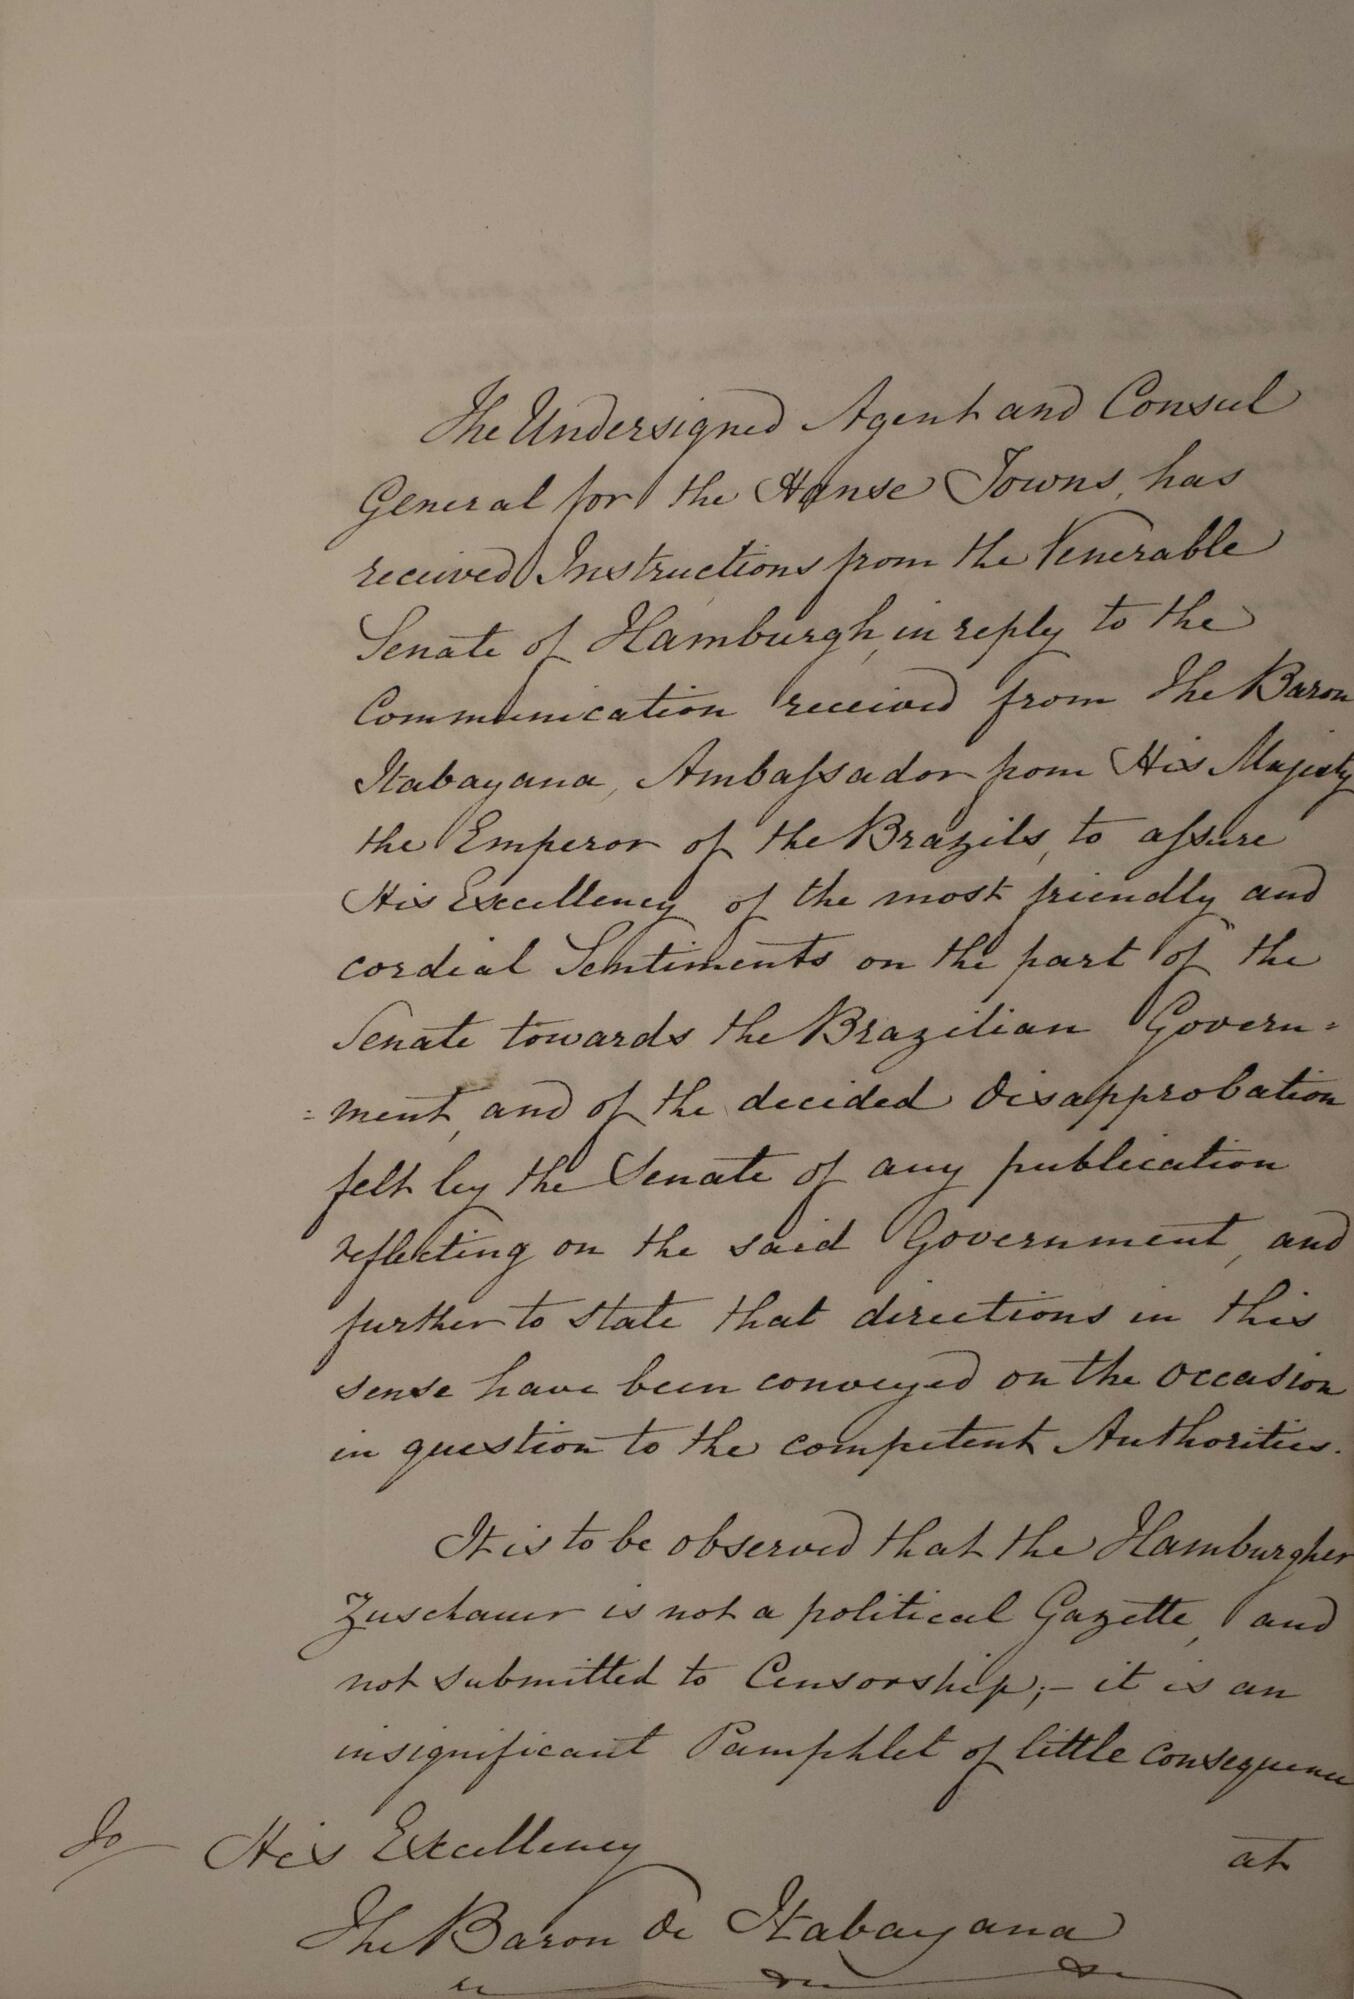 The Undersigned Agent and Consul
General for the Hanse Towns, has
received Instructions from the Venerable
Senate of Hamburgh, in reply to the
Communication received from The Baron
Itabayana, Ambaſsador from His Majesty
the Emperor of the Brazils, to aſsure
His Excellency of the most friendly and
cordial Sentiments on the part of the
Senate towards the Brazilian Govern=
=ment, and of the decided Disapprobation
felt by the Senate of any publication
reflecting on the said Government, and
further to state that directions in this
sense have been conveyed on the occasion
in question to the competent Authorities.
It is to be observed that the Hamburgher
Zuschauer is not a political Gazette, and
not submitted to Censorship;– it is an
insignificant Pamphlet of little consequence
at
To His Excellency
The Baron de Itabayana